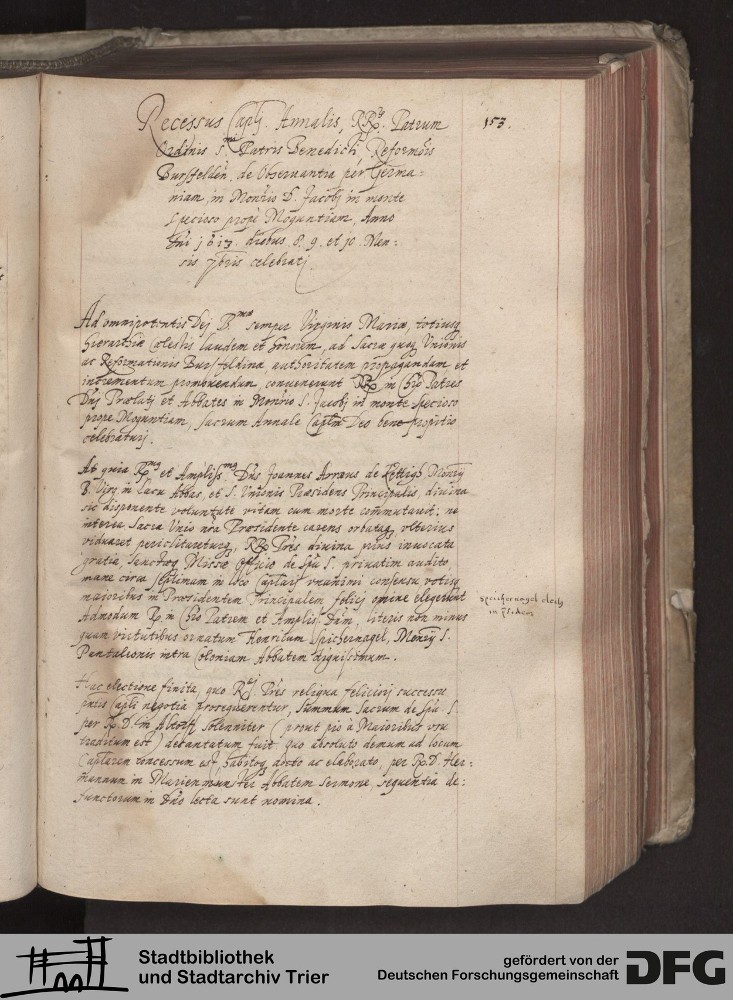 Recessus Capli Annalis, RRdorum Patrum
Ordinis Smi Patris Benedicti, Reformōis
Bursfelden̄, de Observantia per Germa=
niam, in Monrio D. Jacobj in monte
specioso propè Moguntiam, Anno
Dni 1613. diebus 8. 9. et 10. Men=
sis 7bris celebratj.
153.
Ad omnipotentis Dej B.mae semper Virginis Mariæ, totiusq
hierarchiæ cœlestis laudem et honorem, ad sacræ quoq Unionis
ac Reformationis Bursfeldinæ authoritatem propagandam et
incrementum promouendum conuenerunt RR. in Chro Patres
Dnj Prælatj et Abbates in Monrio S. Jacobj in monte specioso
prope Moguntiam, sacrum Annale Caplm Deo bene propitio
celebraturj.
At quia Rmus et Ampliss.mus Dns Joannes Arræus de Kettigh Monrij
B. Virg. in Lacu Abbas, et S. Unionis Præsidens Principalis, diuina
sic disponente voluntate vitam cum morte com̄utauit: ne
interea sacra Unio nra Præsidente carens orbataq, vlterius
viduaret periclitareturq, RR. Pres diuina prius inuocata
gratia, sanctoq Missæ officio de Spu S. priuatim audito,
mane circa septimum in loco Caplari vnanimi consensu votisq
maioribus in Præsidentem Principalem felicj omine elegerunt
Admodum R. in Chro Patrem et Amplis. Dnm, literis non minus
quam virtutibus ornatum Henricum Spichernagel, Monrij S.
Pantaleonis intra Coloniam Abbatem dignissimum.
Spichernagel electus
in
Hac electione finita, quo Rdi Pres reliqua feliciori successu
pntis Capli negotia prosequerentur, summum sacrum de Spu S.
per R. D. in Altorff solenniter (prout pio à Maioribus vsu
traditum est) decantatum fuit: quo absoluto demum ad locum
Caplarem concessum est, habitoq docto ac elaborato, per R. D. Her=
mannum in Marienmunster Abbatem sermone, sequentia de=
functorum in Dno lecta sunt nomina.
Stadtbibliothek
und Stadtarchiv Trier
gefördert von der
Deutschen Forschungsgemeinschaft
DFG